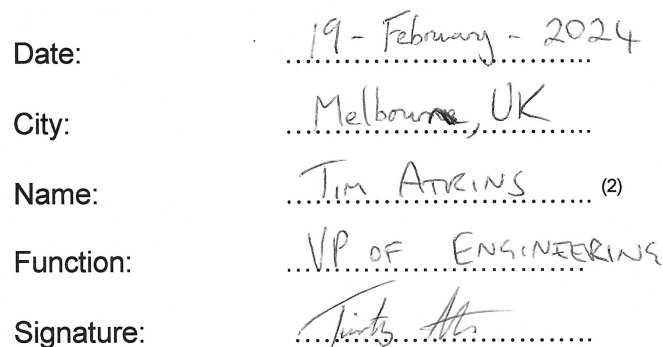 Date: 19 - February - 2024
City: Melbourne, UK
Name: TIM ATKINS (2)
Function: VP OF ENGINEERING
Signature: